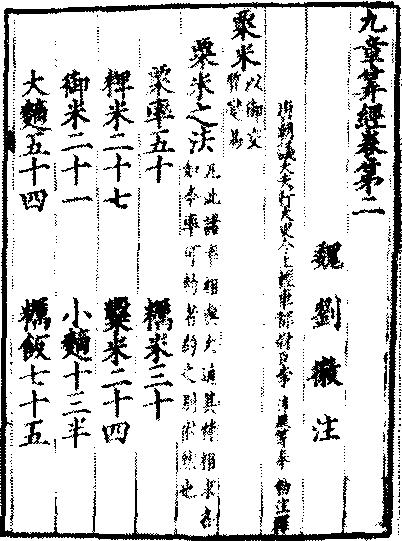 九章筭經卷第二
魏劉徽注
唐朝議大夫行太史令上輕車都尉臣李淳風等奉勑注釋
粟米以御交質變易
粟米之法凡此諸率相與大通其特相求各如本率可約者約之別術然也
粟率五十 糲米三十
粺米二十七 糳米二十四
御米二十一 小䵂十三半
大䵂五十四 糲飯七十五